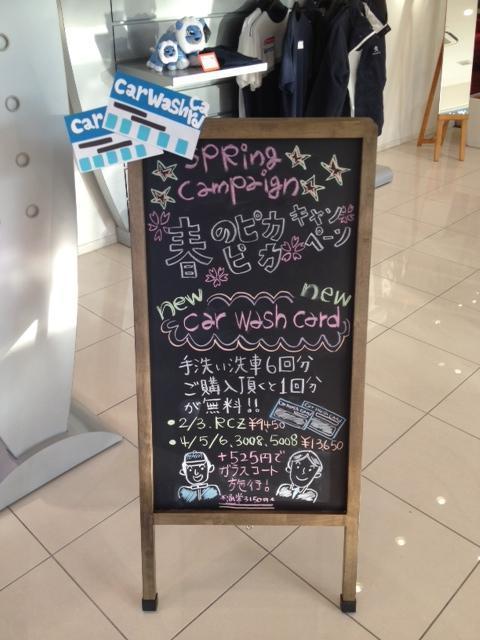 Car Wash Ca
Car
SPRing
Campaign
春のピカピカ キャンペーン
new new
car wash card
手洗い洗車6回分
ご購入頂くと1回分
が無料!!
• 2/3. RCZ ¥9450
• 4/5/6, 3008, 5008 ¥13650
+525円で
ガラスコート
施行!